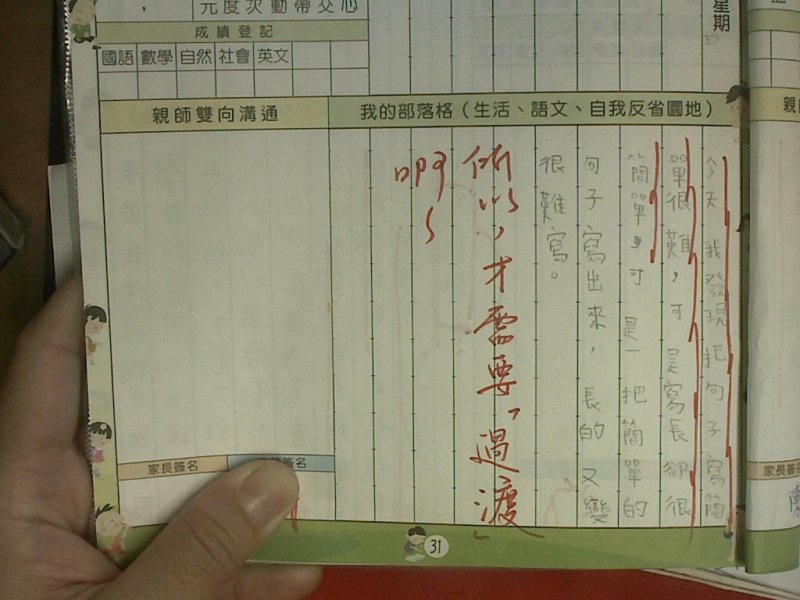 星期
成績登記
國語 數學 自然 社會 英文
親師雙向溝通
我的部落格（生活、語文、自我反省園地）
今天我發現把句子寫簡
單很難，可是寫長卻很
簡單，可是一把簡單的
句子寫出來，長的又變
很難寫。
所以，才需要「過渡」
啊～
家長簽名
簽名
31
親
家長簽